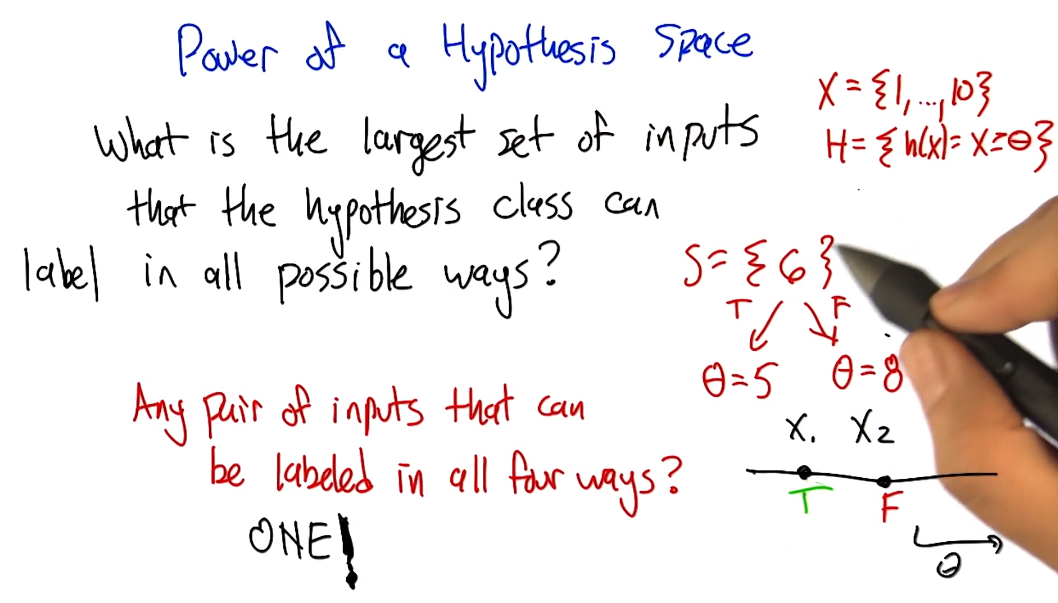 Power of a Hypothesis Space
X = {1, ..., 10}
H = { h(x) = x ≥ θ }
What is the largest set of inputs
that the hypothesis class can
label in all possible ways?
S = { 6 }
T F
θ = 5 θ = 8
Any pair of inputs that can
be labeled in all four ways?
ONE!
X1 X2
T F
θ